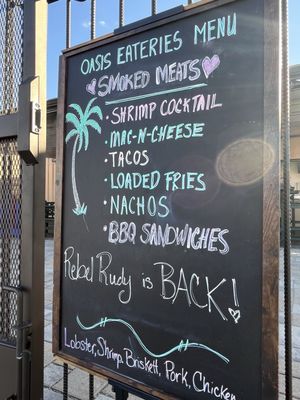 OASIS EATERIES MENU
SMOKED MEATS
• SHRIMP COCKTAIL
• MAC-N-CHEESE
• TACOS
• LOADED FRIES
• NACHOS
• BBQ SANDWICHES
Rebel Rudy is BACK!
Lobster, Shrimp, Briskett, Pork, Chicken